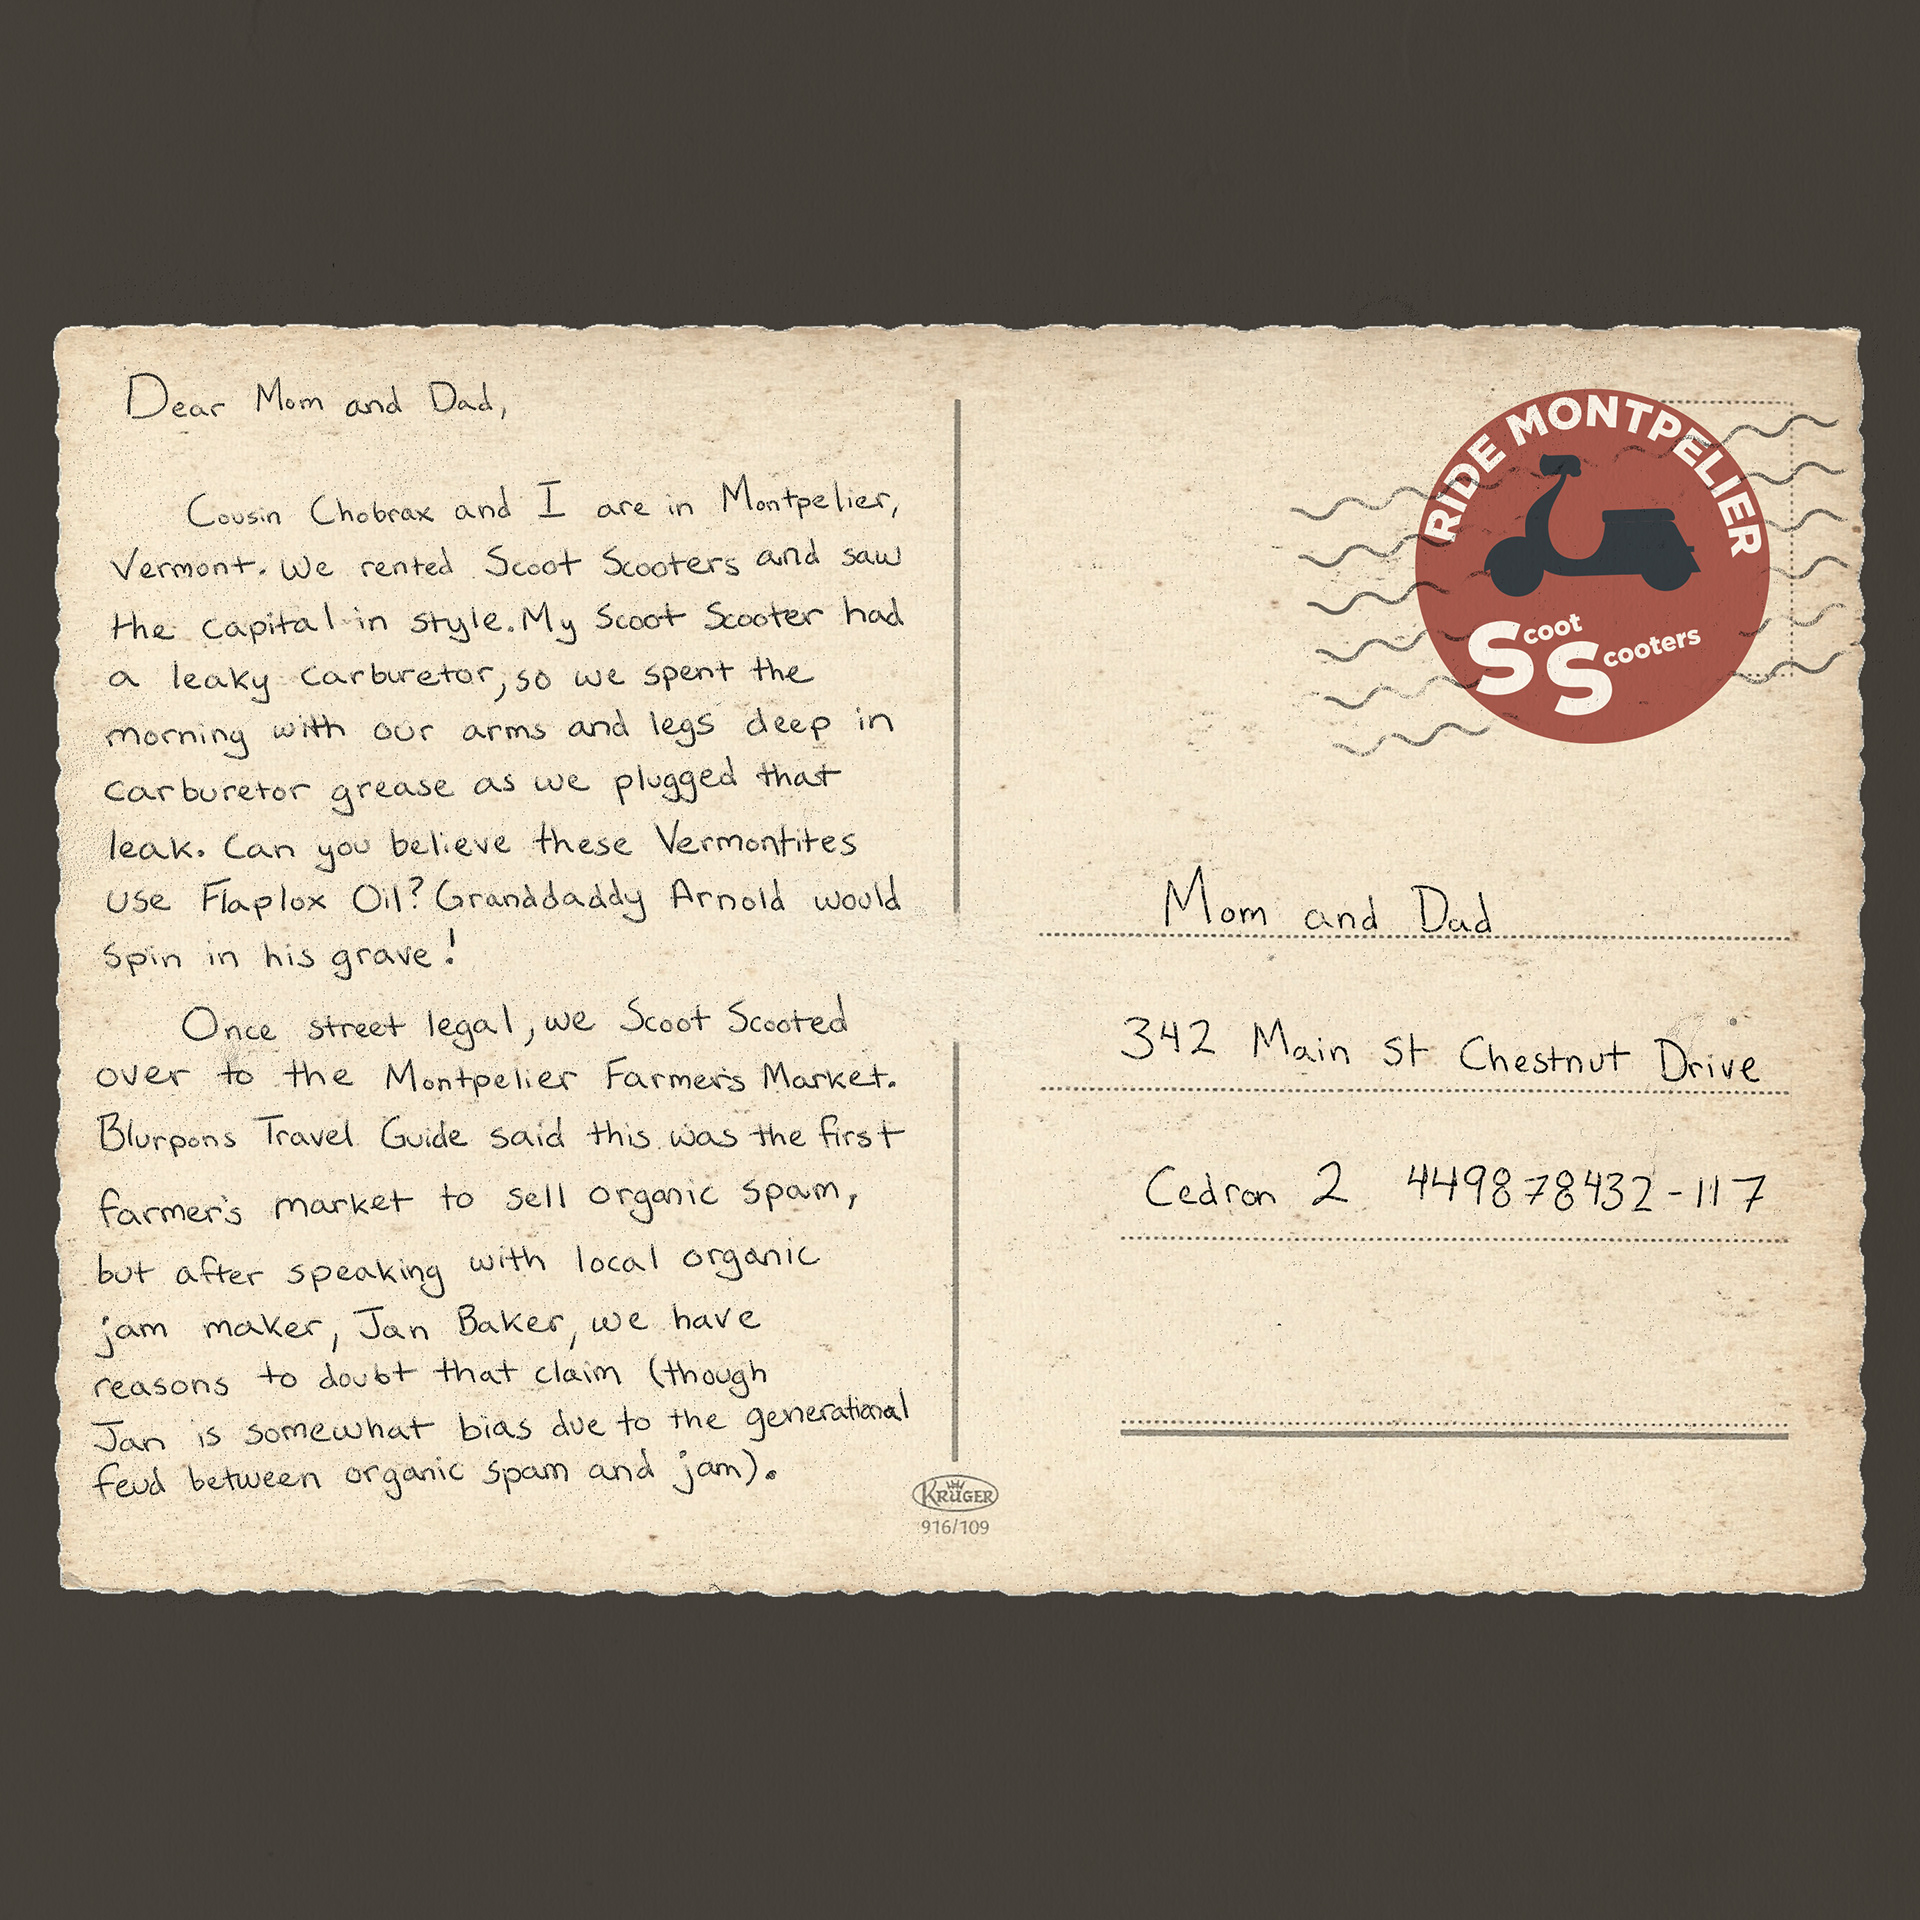 Dear Mom and Dad,
Cousin Chobrax and I are in Montpelier,
Vermont. We rented Scoot Scooters and saw
the capital in style. My Scoot Scooter had
a leaky carburetor, so we spent the
morning with our arms and legs deep in
carburetor grease as we plugged that
leak. Can you believe these Vermontites
use Flaplox Oil? Granddaddy Arnold would
spin in his grave!
Once street legal, we Scoot Scooted
over to the Montpelier Farmer's Market.
Blurpons Travel Guide said this was the first
farmer's market to sell organic spam,
but after speaking with local organic
jam maker, Jan Baker, we have
reasons to doubt that claim (though
Jan is somewhat bias due to the generational
feud between organic spam and jam).
KRÜGER
916/109
RIDE MONTPELIER
Scoot
Scooters
Mom and Dad
342 Main St Chestnut Drive
Cedron 2 449878432-117